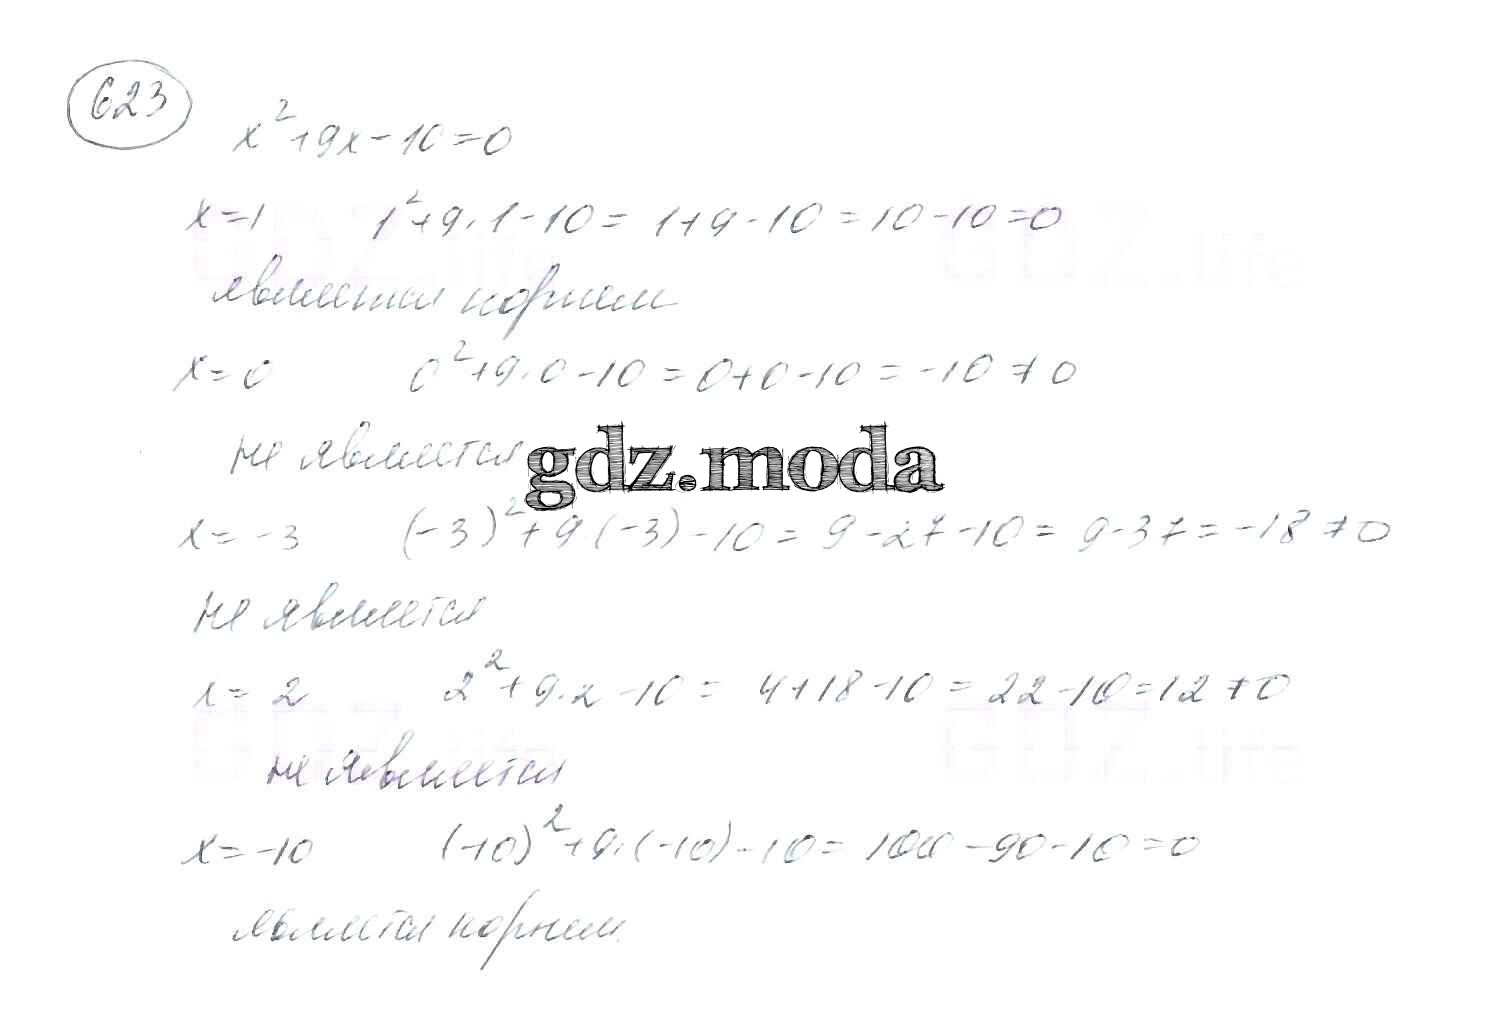 623
x²+9x-10=0
x=1 1²+9·1-10=1+9-10=10-10=0
является корнем
x=0 0²+9·0-10=0+0-10=-10≠0
не является
gdz.moda
x=-3 (-3)²+9(-3)-10=9-27-10=9-37=-18≠0
не является
x=2 2²+9·2-10=4+18-10=22-10=12≠0
не является
x=-10 (-10)²+9·(-10)-10=100-90-10=0
является корнем.
GDZ.life
GDZ.life
GDZ.life
GDZ.life